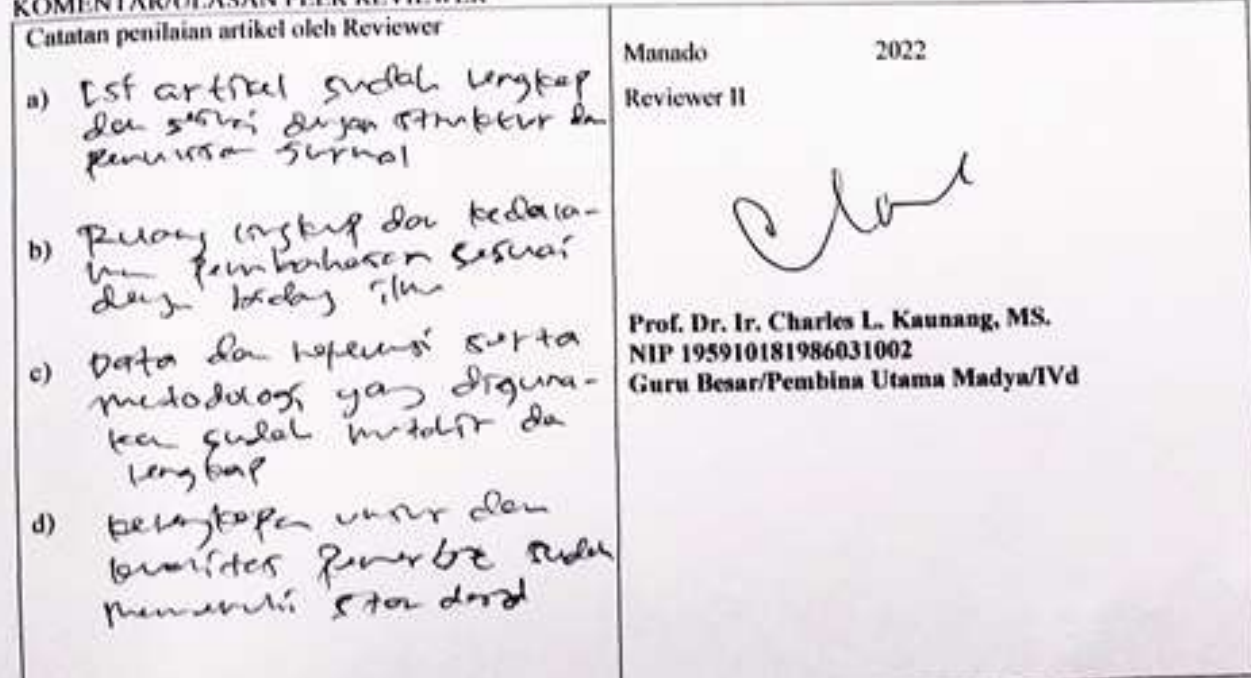 KOMENTAR/ULASAN PEER REVIEWER
Catatan penilaian artikel oleh Reviewer
a) Isi artikel sudah lengkap
dan sesuai dengan struktur dan
penulisan jurnal
b) Ruang lingkup dan kedala-
man pembahasan sesuai
dengan bidang ilmu
c) Data dan serta
metodologi yang diguna-
kan sudah mutahir dan
lengkap
d) kelengkapan unsur dan
kualitas penerbit sudah
memenuhi standard
Manado 2022
Reviewer II
Prof. Dr. Ir. Charles L. Kaunang, MS.
NIP 195910181986031002
Guru Besar/Pembina Utama Madya/IVd